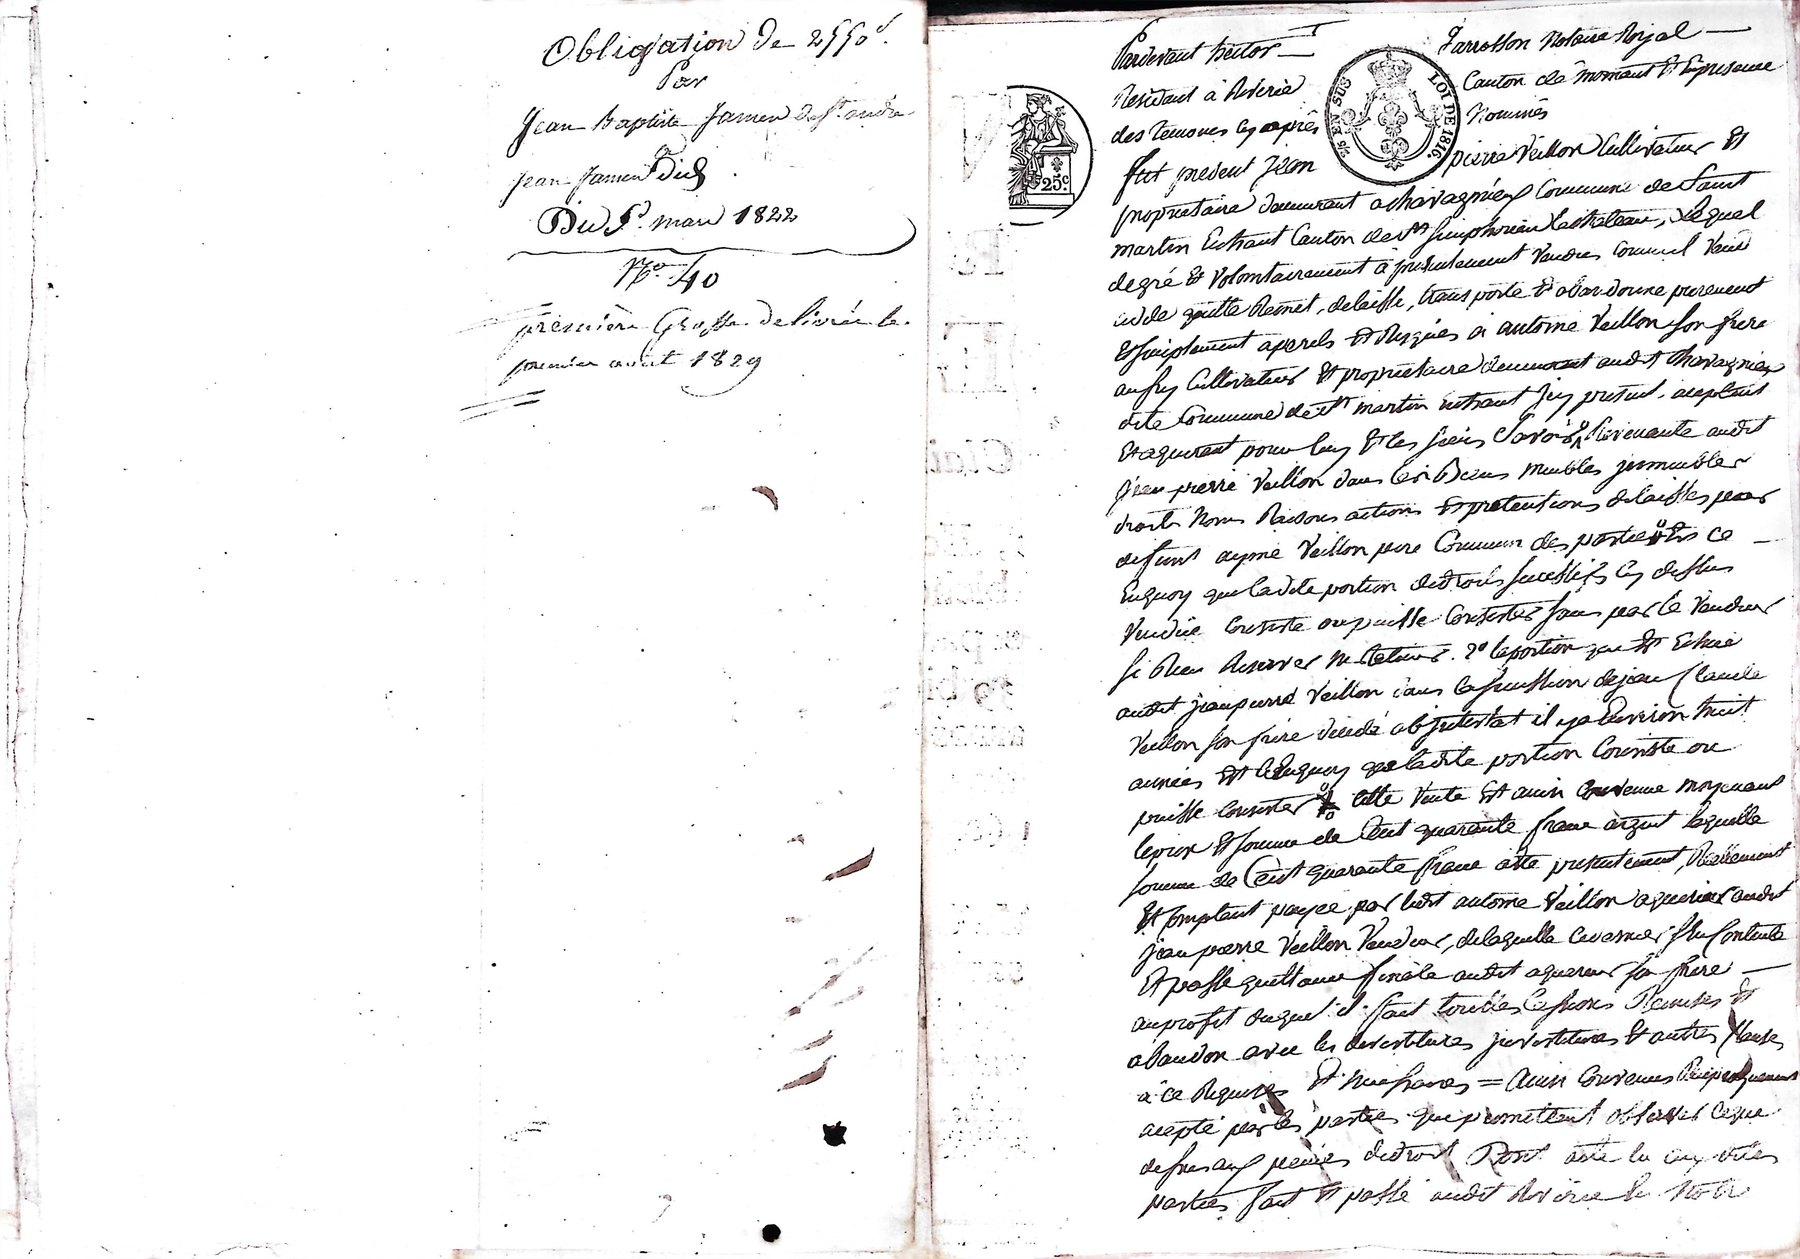 Obligation de 2550 f.
Par
Jean Baptiste Jamen de St andré
Jean Jamen Dich
Du 5e mars 1822
No. 40
première Grosse delivrée le
premier aout 1829
25c.
2/6 EN SUS
LOI DE 1816.
Pardevant hector Jarrosson Notaire Royal
Residant à Riverie Canton de mornant Et Enpresence
des temoins cy après Nommés
fut present Jean pierre Veillon Cultivateur Et
propriétaire demeurant a chavagnieux Commune de Saint
martin Enhaut Canton de St Simphorien lechateau, Lequel
de gré Et Volontairement a presentement Vendu Comme il Vend
cede quitte Remet, delaisse, transporte Et abandonne purement
Et simplement a perils Et Risques à antoine Veillon son frere
aussy Cultivateur Et proprietaire demeurant audit Chavagnieux
dite Commune de St martin enhaut Icy present, acceptant
Et aquerant pour luy Et les siens Savoir 1o Revenante audit
Jean pierre Veillon dans les Biens meubles jmmeubles
droits Noms Raisons actions Et pretentions delaissés par
defunt aymé Veillon pere Commun des parties Et ce
Enquoy que ladite portion de droits successifs cy dessus
Vendue Consiste ou puisse Consister sans par le Vendeur
si Rien Reserver Ni Retenir. 2o la portion qui Est Echue
audit jeanpierre Veillon dans la succession de jean Claude
Veillon son frère décédé abjntestat il ya Environ huit
années Et Cenquoy que ladite portion Consiste ou
puisse Consister cette Vente Est ainsi Convenue moyennant
leprix Et somme de Cent quarante francs argent laquelle
somme de Cent quarante francs a été presentement, Reellement
Et Comptant payée par ledit antoine Veillon aquereur audit
jean pierre Veillon Vendeur, delaquelle ce dernier s'en Contente
Et passe quittance finale audit aquereur son frere
auprofit duquel il fait touttes Cessions Remises Et
abandon avec les devestitures jnvestitures Et autres Clauses
à ce Requises Et Necessaires = Ainsi Convenu Reciproquement
accepté par les parties qui promettent observer ceque
dessus aux peines de droit Dont acte lu auxdites
parties fait Et passé audit Riverie En Notre